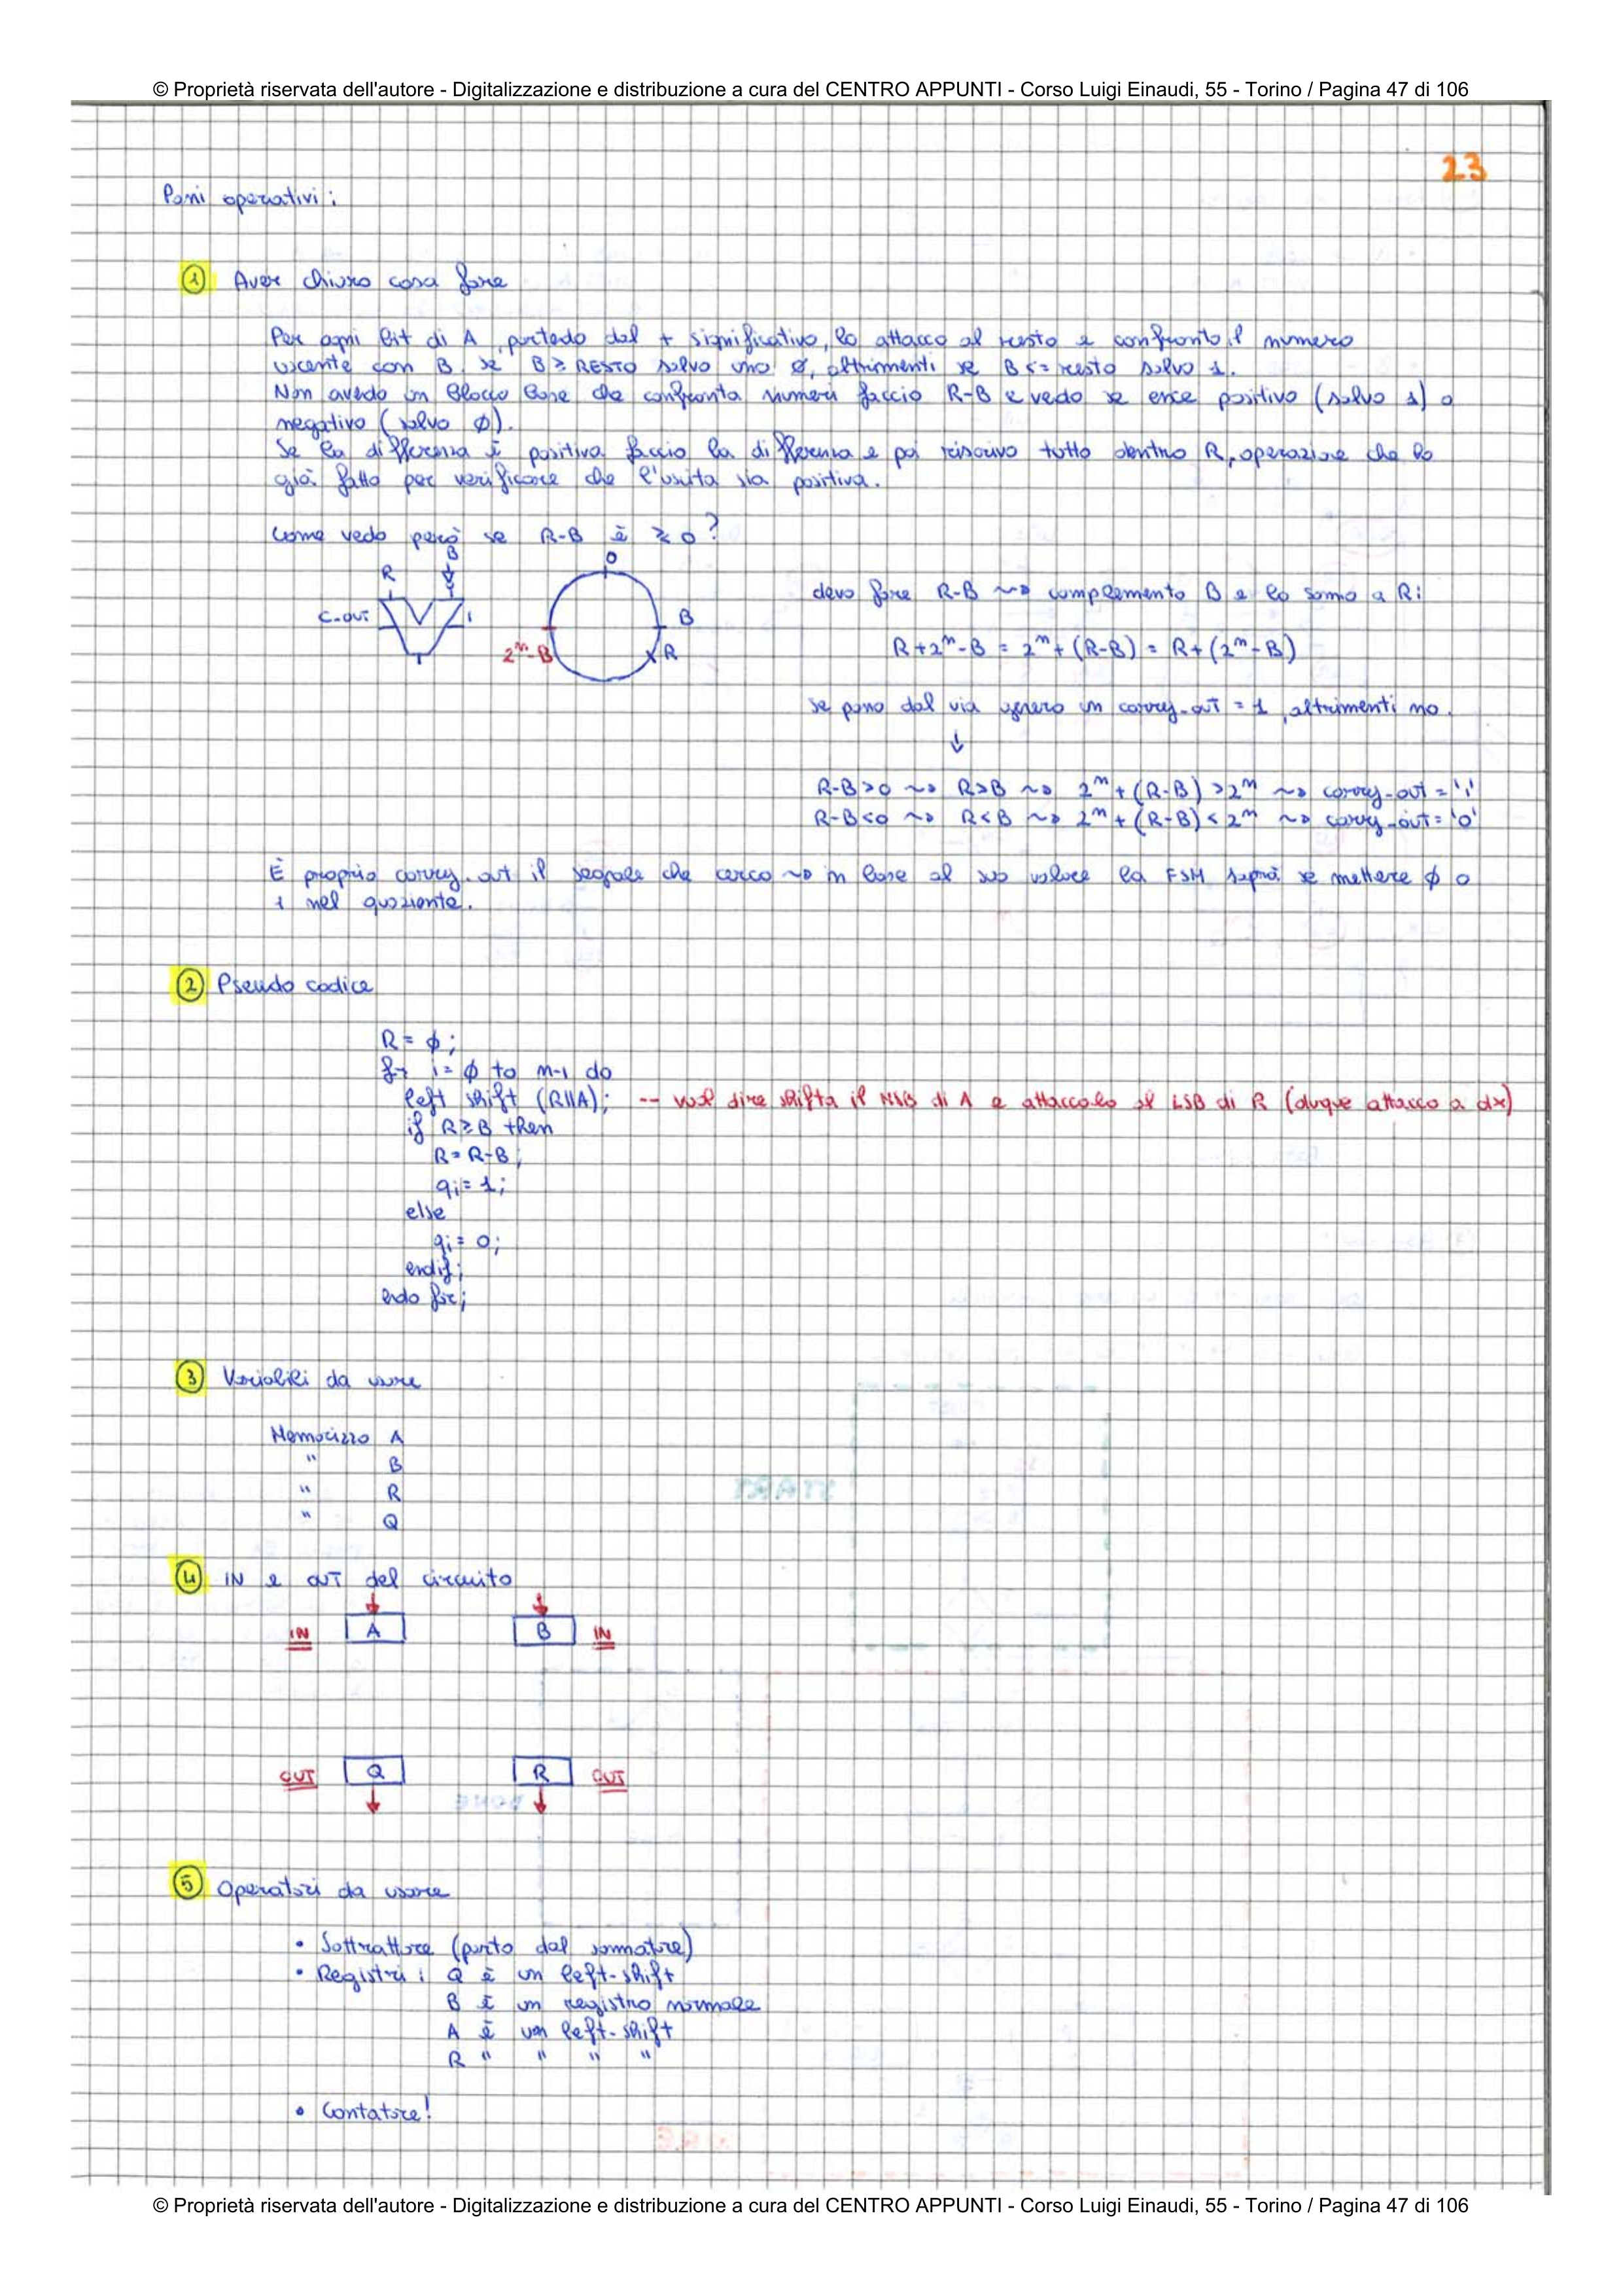 © Proprietà riservata dell'autore - Digitalizzazione e distribuzione a cura del CENTRO APPUNTI - Corso Luigi Einaudi, 55 - Torino / Pagina 47 di 106
23
Passi operativi:
1 Aver chiaro cosa fare
Per ogni bit di A, partedo dal + significativo, lo attacco al resto e confronto il numero
uscente con B, se B ≥ RESTO salvo uno ø, altrimenti se B <= resto salvo 1.
Non avedo un blocco base che confronta numeri faccio R-B e vedo se esce positivo (salvo 1) o
negativo (salvo ø).
Se la differenza è positiva faccio la differenza e poi riscrivo tutto dentro R, operazione che ho
già fatto per verificare che l'uscita sia positiva.
Come vedo però se R-B è ≥ 0?
R B
C-OUT 1
0
B
R
2ⁿ-B
devo fare R-B ~> complemento B e lo sommo a R:
R+2ⁿ-B = 2ⁿ+(R-B) = R+(2ⁿ-B)
se passo dal via genero un carry-out = 1, altrimenti no.
↓
R-B>0 ~> R>B ~> 2ⁿ+(R-B)>2ⁿ ~> carry-out='1'
R-B<0 ~> R<B ~> 2ⁿ+(R-B)<2ⁿ ~> carry-out='0'
È proprio carry-out il segnale che cerco ~> in base al suo valore la FSM saprà se mettere ø o
1 nel quoziente.
2 Pseudo codice
R = ø;
for i = ø to n-1 do
left shift (R||A); -- vuol dire shifta il MSB di A e attaccalo al LSB di R (duque attacco a dx)
if R≥B then
R = R-B;
qi = 1;
else
qi = 0;
endif;
endo for;
3 Variabili da usare
Memorizzo A
" B
" R
" Q
4 IN e OUT del circuito
IN A B IN
OUT Q R OUT
5 Operatori da usare
• Sottrattore (parto dal sommatore)
• Registri: Q è un left-shift
B è un registro normale
A è un left-shift
R " " " "
• Contatore!
© Proprietà riservata dell'autore - Digitalizzazione e distribuzione a cura del CENTRO APPUNTI - Corso Luigi Einaudi, 55 - Torino / Pagina 47 di 106